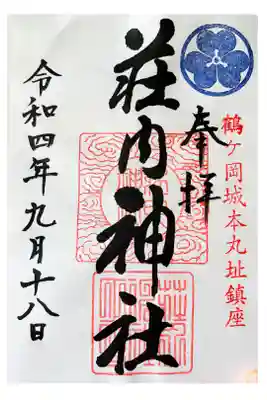 鶴ヶ岡城本丸址鎮座
奉拝
荘内神社
令和四年九月十八日